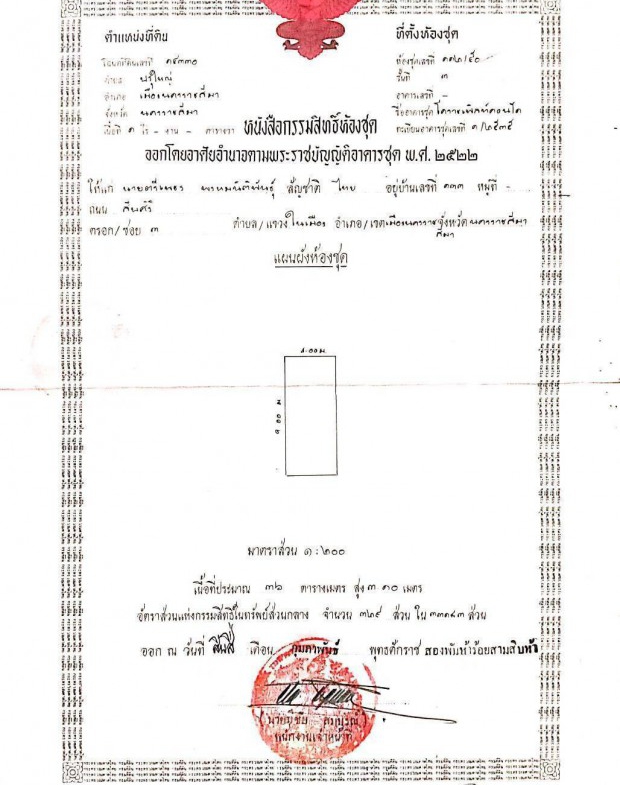 ตำแหน่งที่ดิน
ที่ตั้งห้องชุด
โฉนดที่ดินเลขที่ ๑๕๓๓๐
ห้องชุดเลขที่ ๑๗๒/๕๐
ตำบล ปรุใหญ่
ชั้นที่ ๓
อำเภอ เมืองนครราชสีมา
อาคารเลขที่ -
จังหวัด นครราชสีมา
ชื่ออาคารชุด โคราชเพิสท์คอนโด
เนื้อที่ ๑ ไร่ - งาน - ตารางวา
ทะเบียนอาคารชุดเลขที่ ๑/๒๕๓๕
หนังสือกรรมสิทธิ์ห้องชุด
ออกโดยอาศัยอำนาจตามพระราชบัญญัติอาคารชุด พ.ศ. ๒๕๒๒
ให้แก่ สัญชาติ ไทย อยู่บ้านเลขที่ ๑๓๓ หมู่ที่ -
ถนน สืบศิริ
ตรอก/ซอย ๓ ตำบล/แขวง ในเมือง อำเภอ/เขต เมืองนครราชสีมา จังหวัด นครราชสีมา
แผนผังห้องชุด
๔.๐๐ ม.
๙.๐๐ ม.
มาตราส่วน ๑ : ๒๐๐
เนื้อที่ประมาณ ๓๖ ตารางเมตร สูง ๓.๑๐ เมตร
อัตราส่วนแห่งกรรมสิทธิ์ในทรัพย์ส่วนกลาง จำนวน ๓๒๕ ส่วน ใน ๓๓๑๘๓ ส่วน
ออก ณ วันที่ สิบสี่ เดือน กุมภาพันธ์ พุทธศักราช สองพันห้าร้อยสามสิบห้า
พนักงานเจ้าหน้าที่